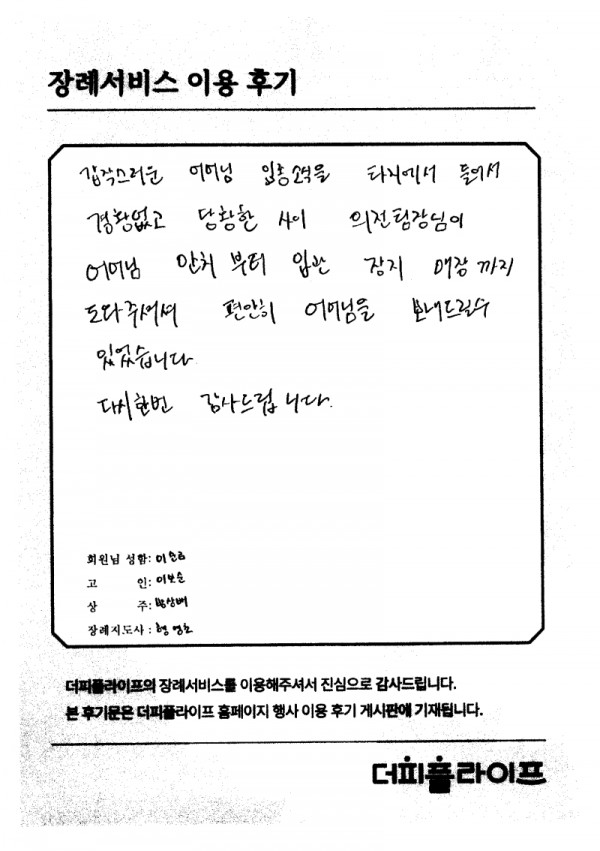 장례서비스 이용 후기
갑작스러운 어머님 임종소식을 타지에서 들어서
경황없고 당황한 사이 의전팀장님이
어머님 안치 부터 입관 장지 매장 까지
도와주셔서 편안히 어머님을 보내드릴수
있었습니다
다시한번 감사드립니다.
회원님 성함:
고 인: 이보순
상 주:
장례지도사 :
더피플라이프의 장례서비스를 이용해주셔서 진심으로 감사드립니다.
본 후기문은 더피플라이프 홈페이지 행사 이용 후기 게시판에 기재됩니다.
더피플라이프